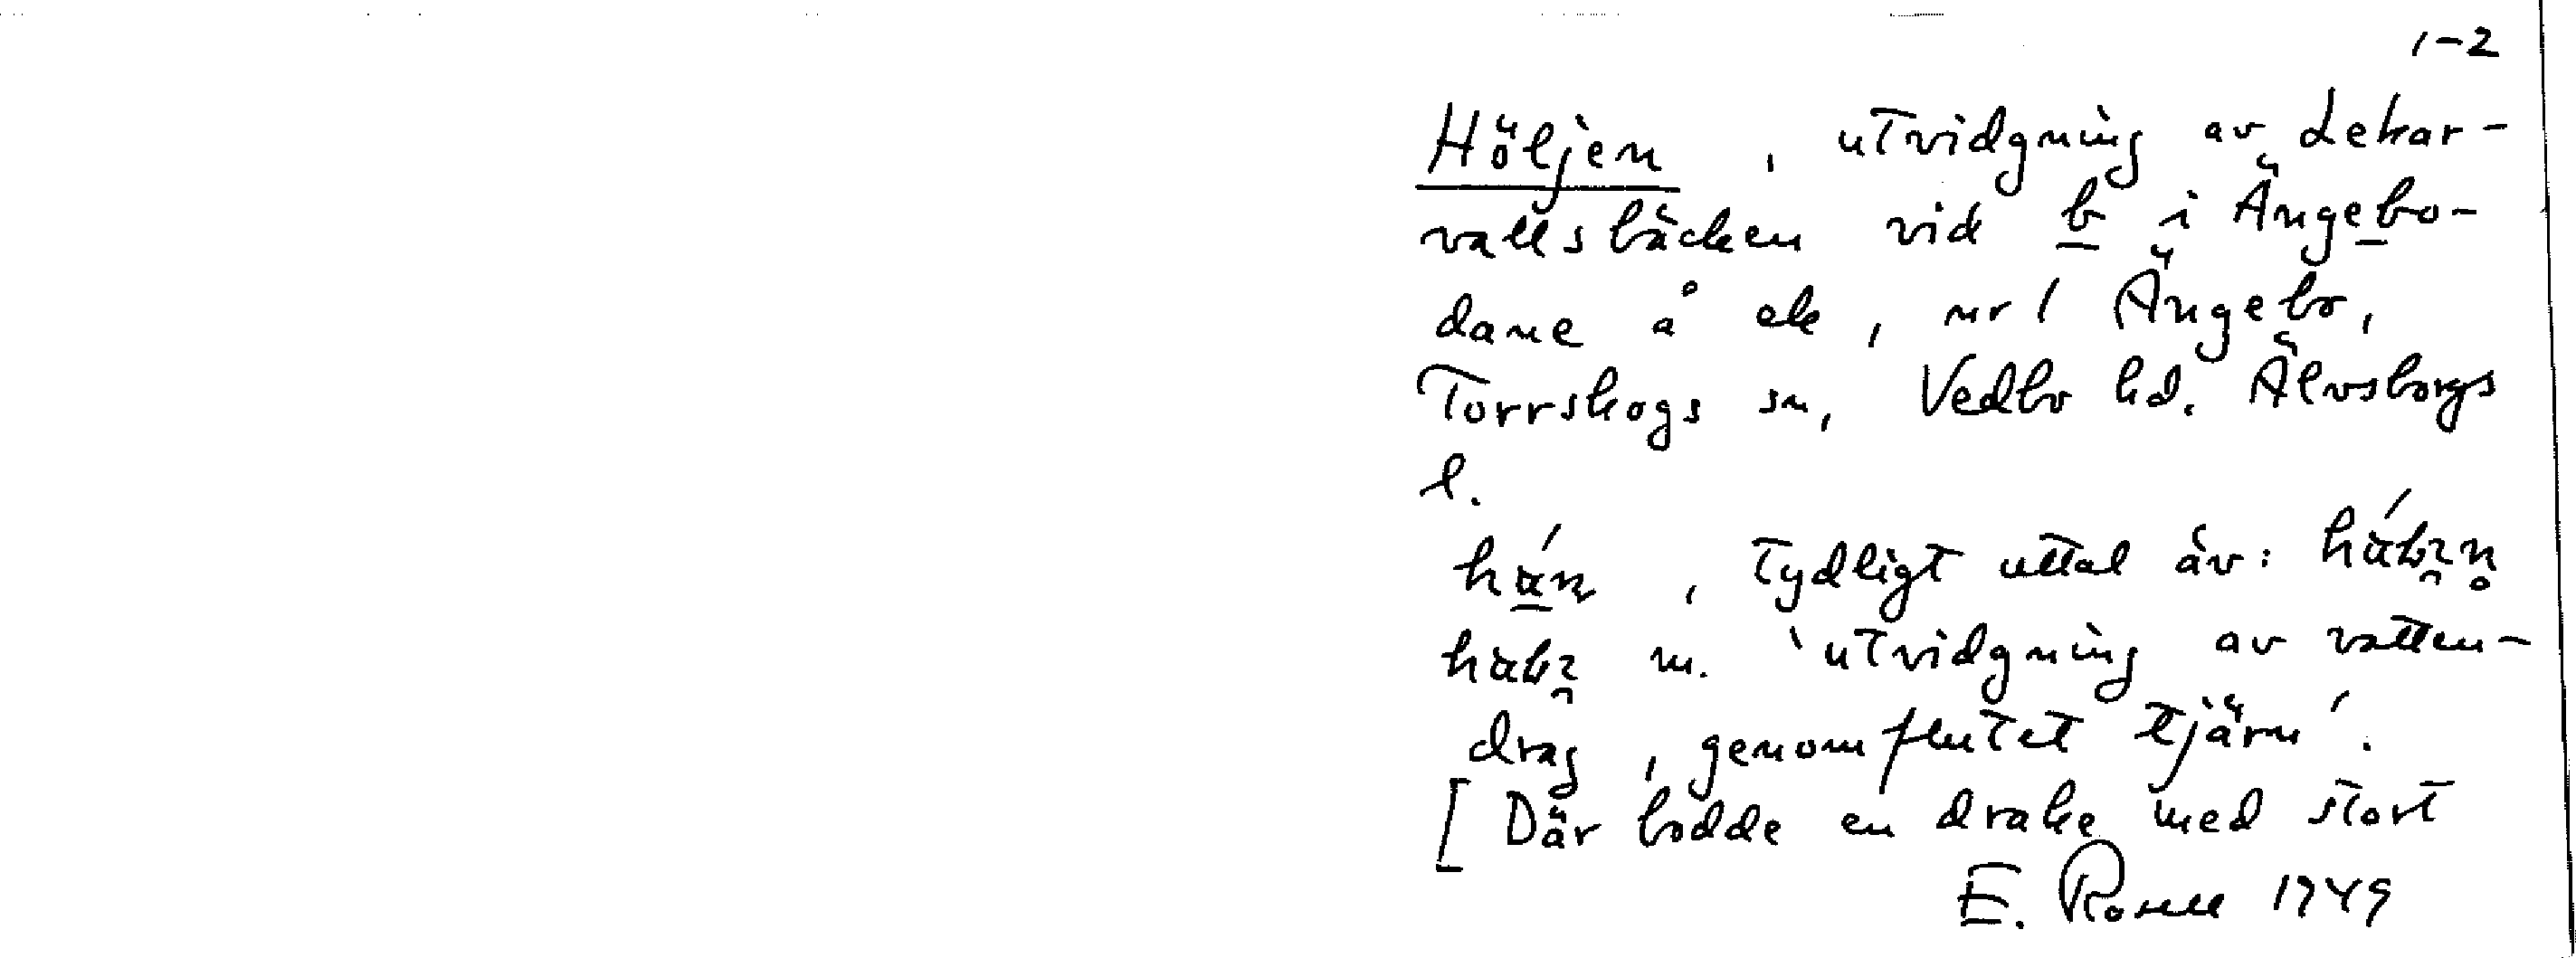 1-2
Höljen, utvidgning av Lekar-
vallsbäcken vid b i Ängebo-
dane å ek, nr 1 Ängebo,
Torrskogs sn, Vedbo hd. Älvsborgs
l.
, tydligt uttal äv:
m. 'utvidgning av vatten-
drag, genomflutet tjärn'.
[Där bodde en drake med stort
E. Rosell 1949